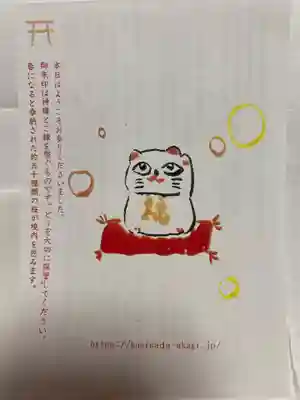 本日はようこそお参りくださいました。
御朱印は神様とご縁を繋ぐものです。どうぞ大切に保管してください。
春になると奉納された約五十種類の桜が境内を包みます。
福
https://kunisada-akagi.jp/